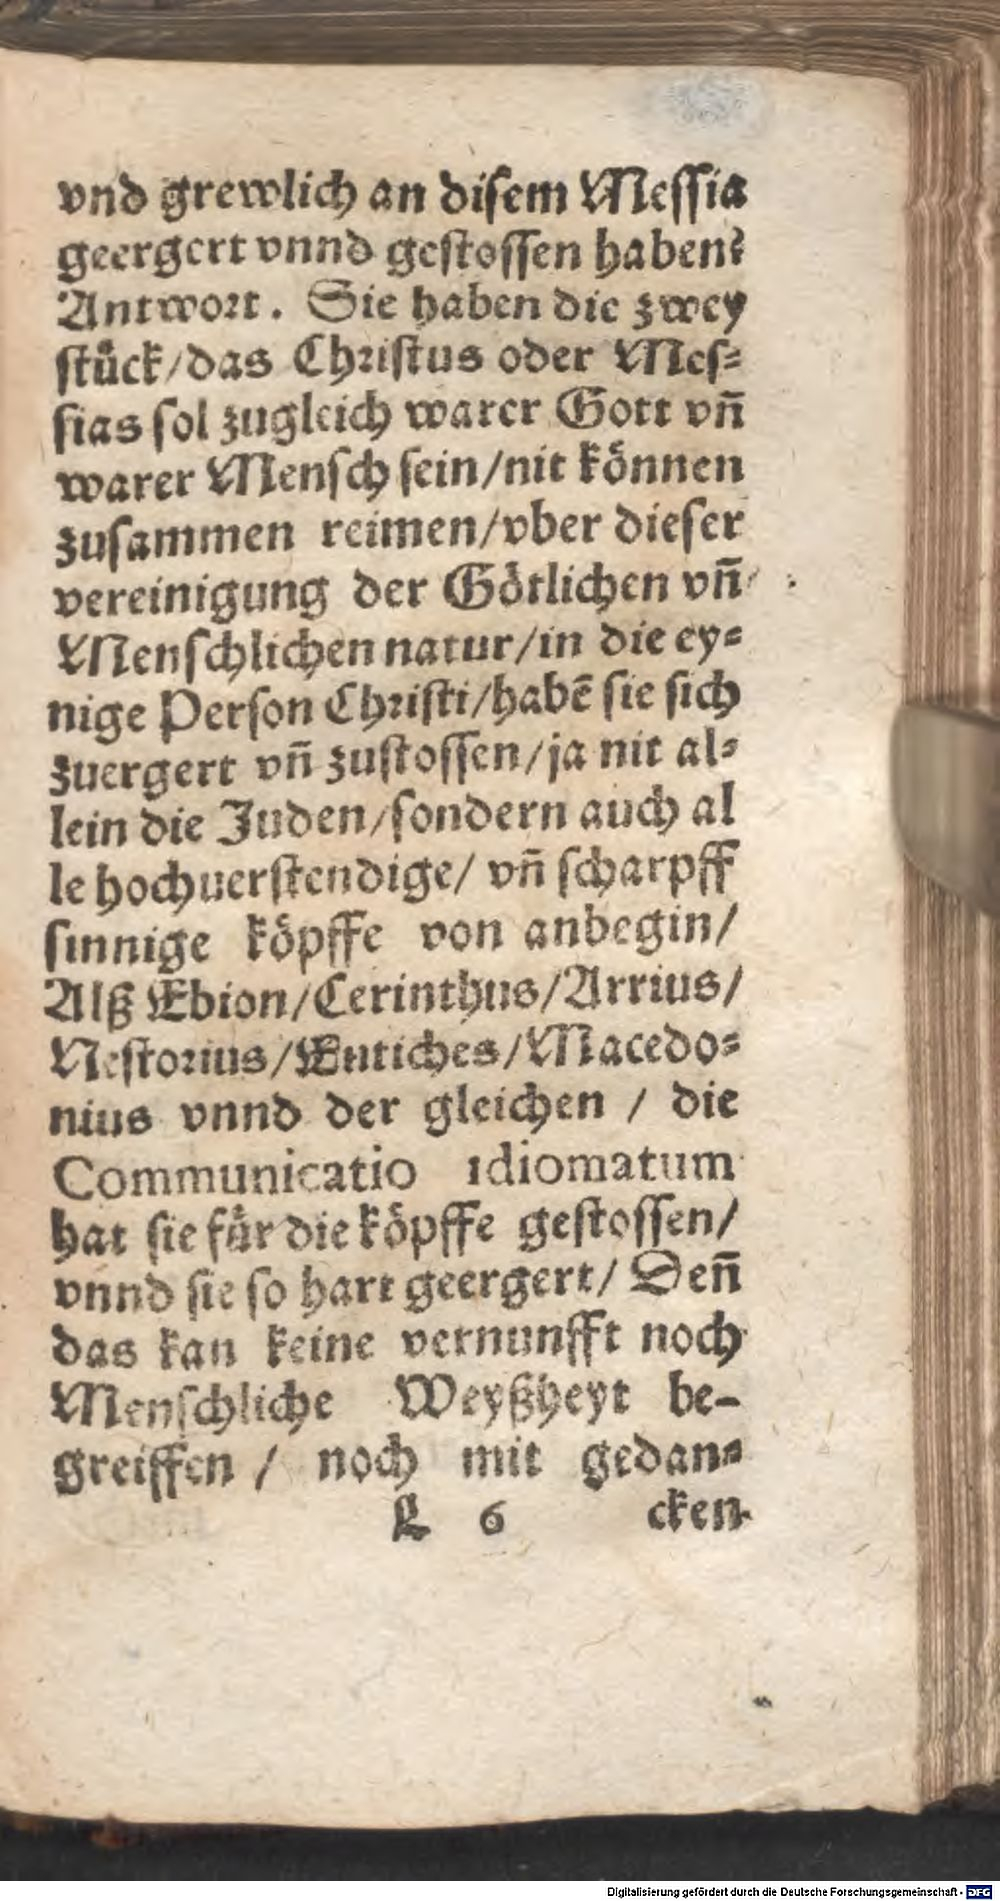 vnd grewlich an disem Messia
geergert vnnd gestossen haben?
Antwort. Sie haben die zwey
stuͤck/das Christus oder Mes⸗
sias sol zugleich warer Gott vñ
warer Mensch sein/nit koͤnnen
zusammen reimen/vber dieser
vereinigung der Goͤtlichen vñ
Menschlichen natur/in die ey⸗
nige Person Christi/habẽ sie sich
zuergert vñ zustossen/ja nit al⸗
lein die Juden/sondern auch al
le hochuerstendige/ vñ scharpff
sinnige koͤpffe von anbegin/
Alß Ebion/Cerinthus/Arrius/
Nestorius/Eutiches/Macedo⸗
nius vnnd der gleichen / die
Communicatio idiomatum
hat sie fuͤr die koͤpffe gestossen/
vnnd sie so hart geergert/ Deñ
das kan keine vernunfft noch
Menschliche Weyßheyt be-
greiffen / noch mit gedan⸗
L 6 cken
Digitalisierung gefördert durch die Deutsche Forschungsgemeinschaft - DFG